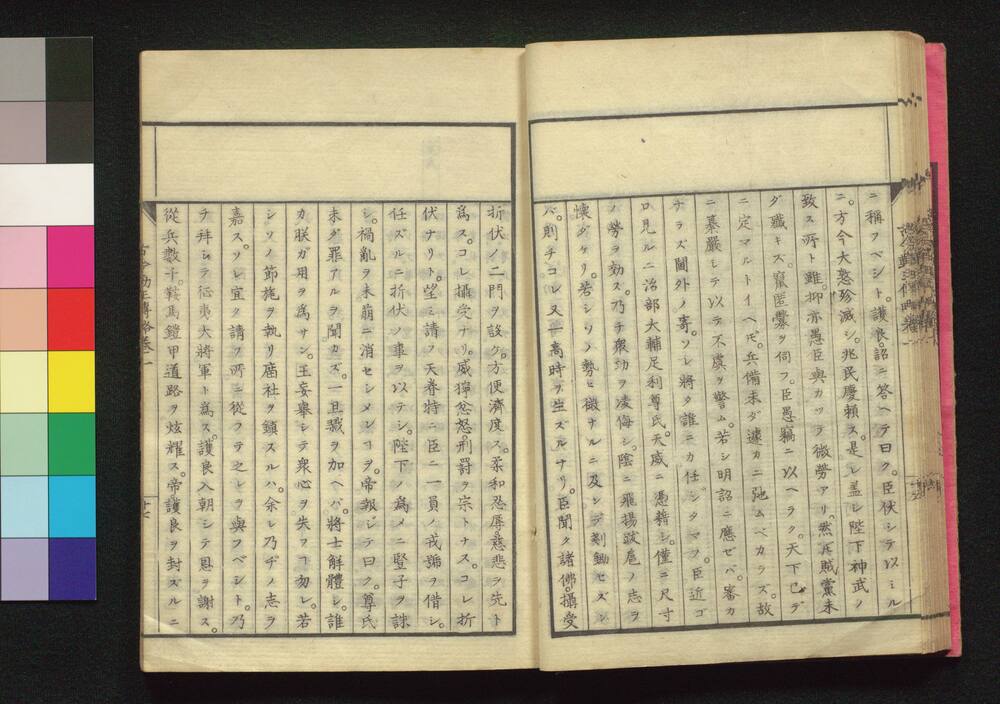 ニ稱フベシト。護良。詔ニ答ヘテ曰ク。臣伏シテ以ミル
ニ。方今大憝殄滅シ。兆民慶頼ス。是レ盖シ陛下神武ノ
致ス所ト雖。抑亦愚臣與カツテ微勞アリ。然𪜈賊黨未
ダ殲キズ。竄匿釁ヲ伺フ。臣愚竊ニ以ヘラク。天下已デ
ニ定マルトイヘ𪜈。兵備未ダ遽カニ弛ムベカラズ。故
ニ綦嚴シテ以テ不虞ヲ警ム。若シ明詔ニ應ゼバ。審カ
ナラズ閫外ノ寄。ソレ將タ誰ニカ任ジタマフ。臣近ゴ
ロ見ルニ治部大輔足利尊氏。天威ニ憑藉シ。僅ニ尺寸
ノ勞ヲ効ス。乃チ衆功ヲ凌侮シ。陰ニ飛揚跋扈ノ志ヲ
懐ダケリ。若シソノ勢ヒ微ナルニ及シデ剗鋤セズン
バ。則チコレ又一高時ヲ生ズルナリ。臣聞ク諸佛。攝受
折伏ノ二門ヲ設ク。方便濟度ス。柔和忍辱慈悲ヲ先ト
爲ス。コレ攝受ナリ。威獰忿怒。刑罰ヲ宗トナス。コレ折
伏ナリト。望ミ請フ天眷特ニ臣ニ一員ノ戎號ヲ借シ。
任ズルニ折伏ノ事ヲ以テシ。陛下ノ爲メニ豎子ヲ誅
シ。禍亂ヲ未萠ニ消セシメンヿヲ。帝報ジテ曰ク。尊氏
未ダ罪アルヲ聞カズ。一旦戮ヲ加ヘバ。將士解體シ。誰
カ朕ガ用ヲ爲サン。王妄擧シテ衆心ヲ失フヿ勿レ。若
シソノ節旄ヲ執リ庿社ヲ鎮スルハ。余レ乃ヂノ志ヲ
嘉ス。ソレ宜ク請フ所ニ從フテ之レヲ與フベシト。乃
チ拜シテ征夷大將軍ト爲ス。護良入朝シテ恩ヲ謝ス。
從兵數千。鞍馬鎧甲道路ヲ炫燿ス。帝護良ヲ封ズルニ